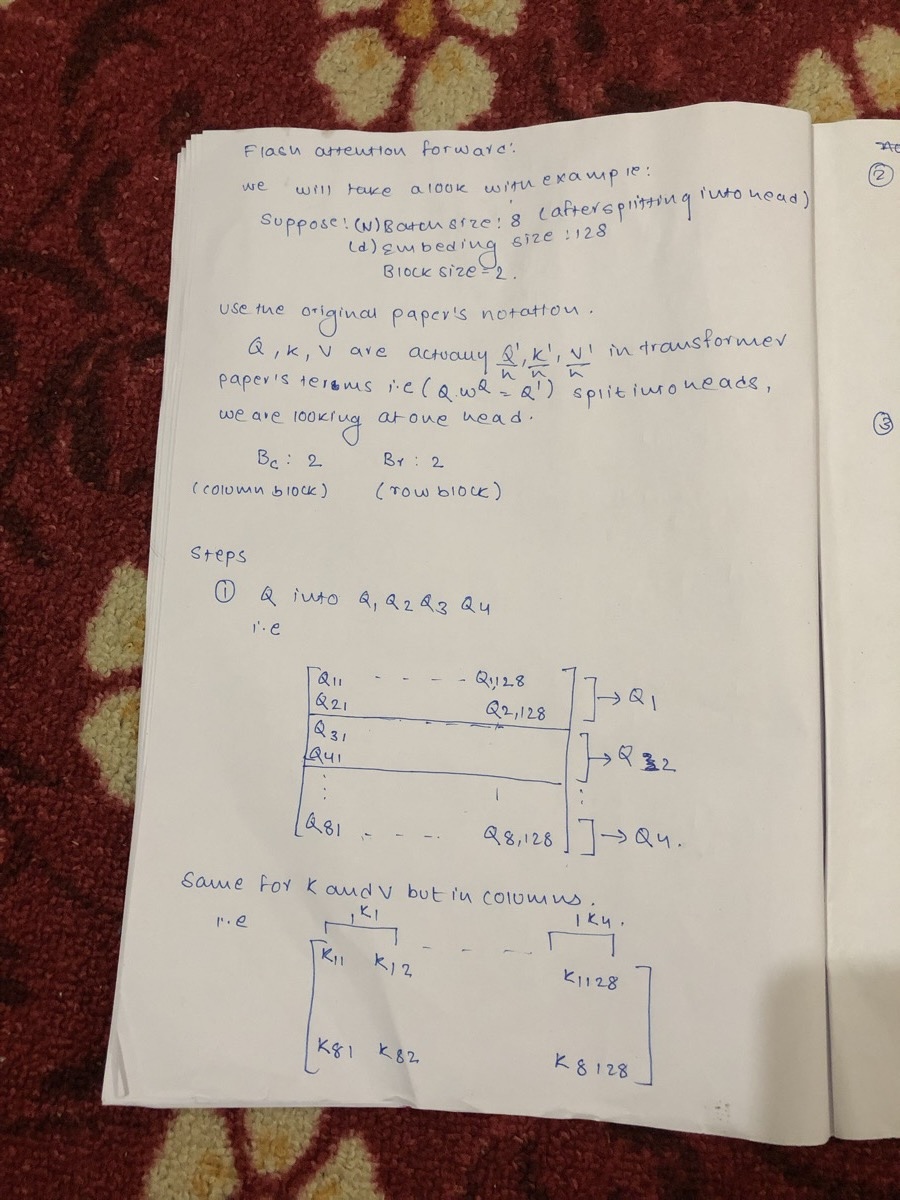 Flash attention forward:
we will take a look with example:
Suppose: (N) Batch size: 8 (after splitting into head)
(d) Embeding size : 128
Block size = 2.
Use the original paper's notation.
Q, K, V are actually Q'/h, K'/h, V'/h in transformer
paper's terms i.e (Q.W^Q = Q') split into heads,
we are looking at one head.
Bc : 2 Br : 2
(column block) (row block)
Steps
① Q into Q1 Q2 Q3 Q4
i.e
Q11 - - - - Q1,128
Q21 Q2,128 → Q1
Q31
Q41 → Q 2
Q81 - - - Q8,128 → Q4.
Same for K and V but in columns.
i.e K1 K4.
K11 K12 - - - - K1128
K81 K82 K8128
②
③